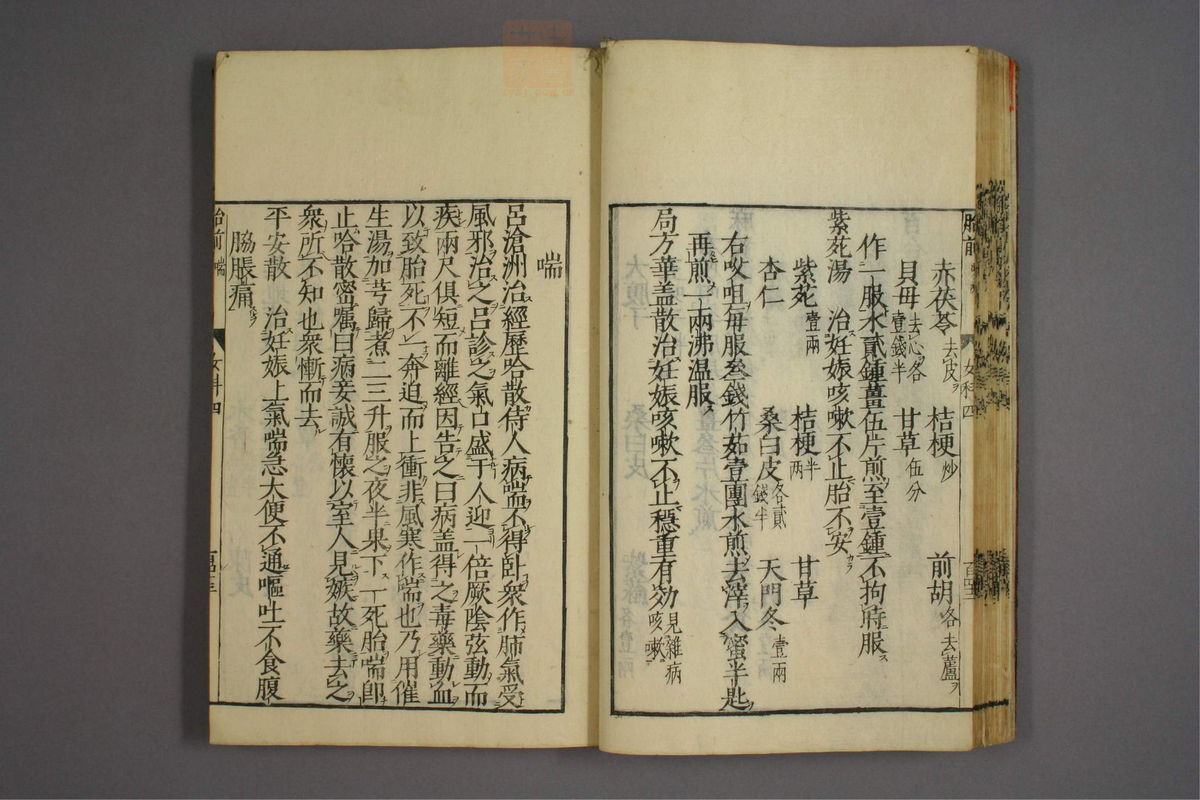 赤茯苓去皮 桔梗炒 前胡各去蘆
貝母去心各壹錢半 甘草伍分
作一服水貳鍾薑伍片煎至壹鍾不拘時服
紫苑湯 治妊娠咳嗽不止胎不安
紫苑壹兩 桔梗半兩 甘草
杏仁 桑白皮各貳錢半 天門冬壹兩
右㕮咀每服叁錢竹茹壹團水煎去滓入蜜半匙
再煎一兩沸温服
局方華盖散治妊娠咳嗽不止穩重有効見雜病咳嗽
胎前 女科四
喘
呂滄洲治經歷哈散侍人病喘不得卧衆作肺氣受
風邪治之呂診之氣口盛于人迎一倍厥陰弦動而
疾兩尺俱短而離經因告之曰病盖得之毒藥動血
以致胎死不下奔迫而上衝非風寒作喘也乃用催
生湯加芎歸煮二三升服之夜半果下一死胎喘即
止哈散密嘱曰病妾誠有懷以室人見嫉故藥去之
衆所不知也衆慚而去
平安散 治妊娠上氣喘急大便不通嘔吐不食腹
脇脹痛
胎前 喘 女科四